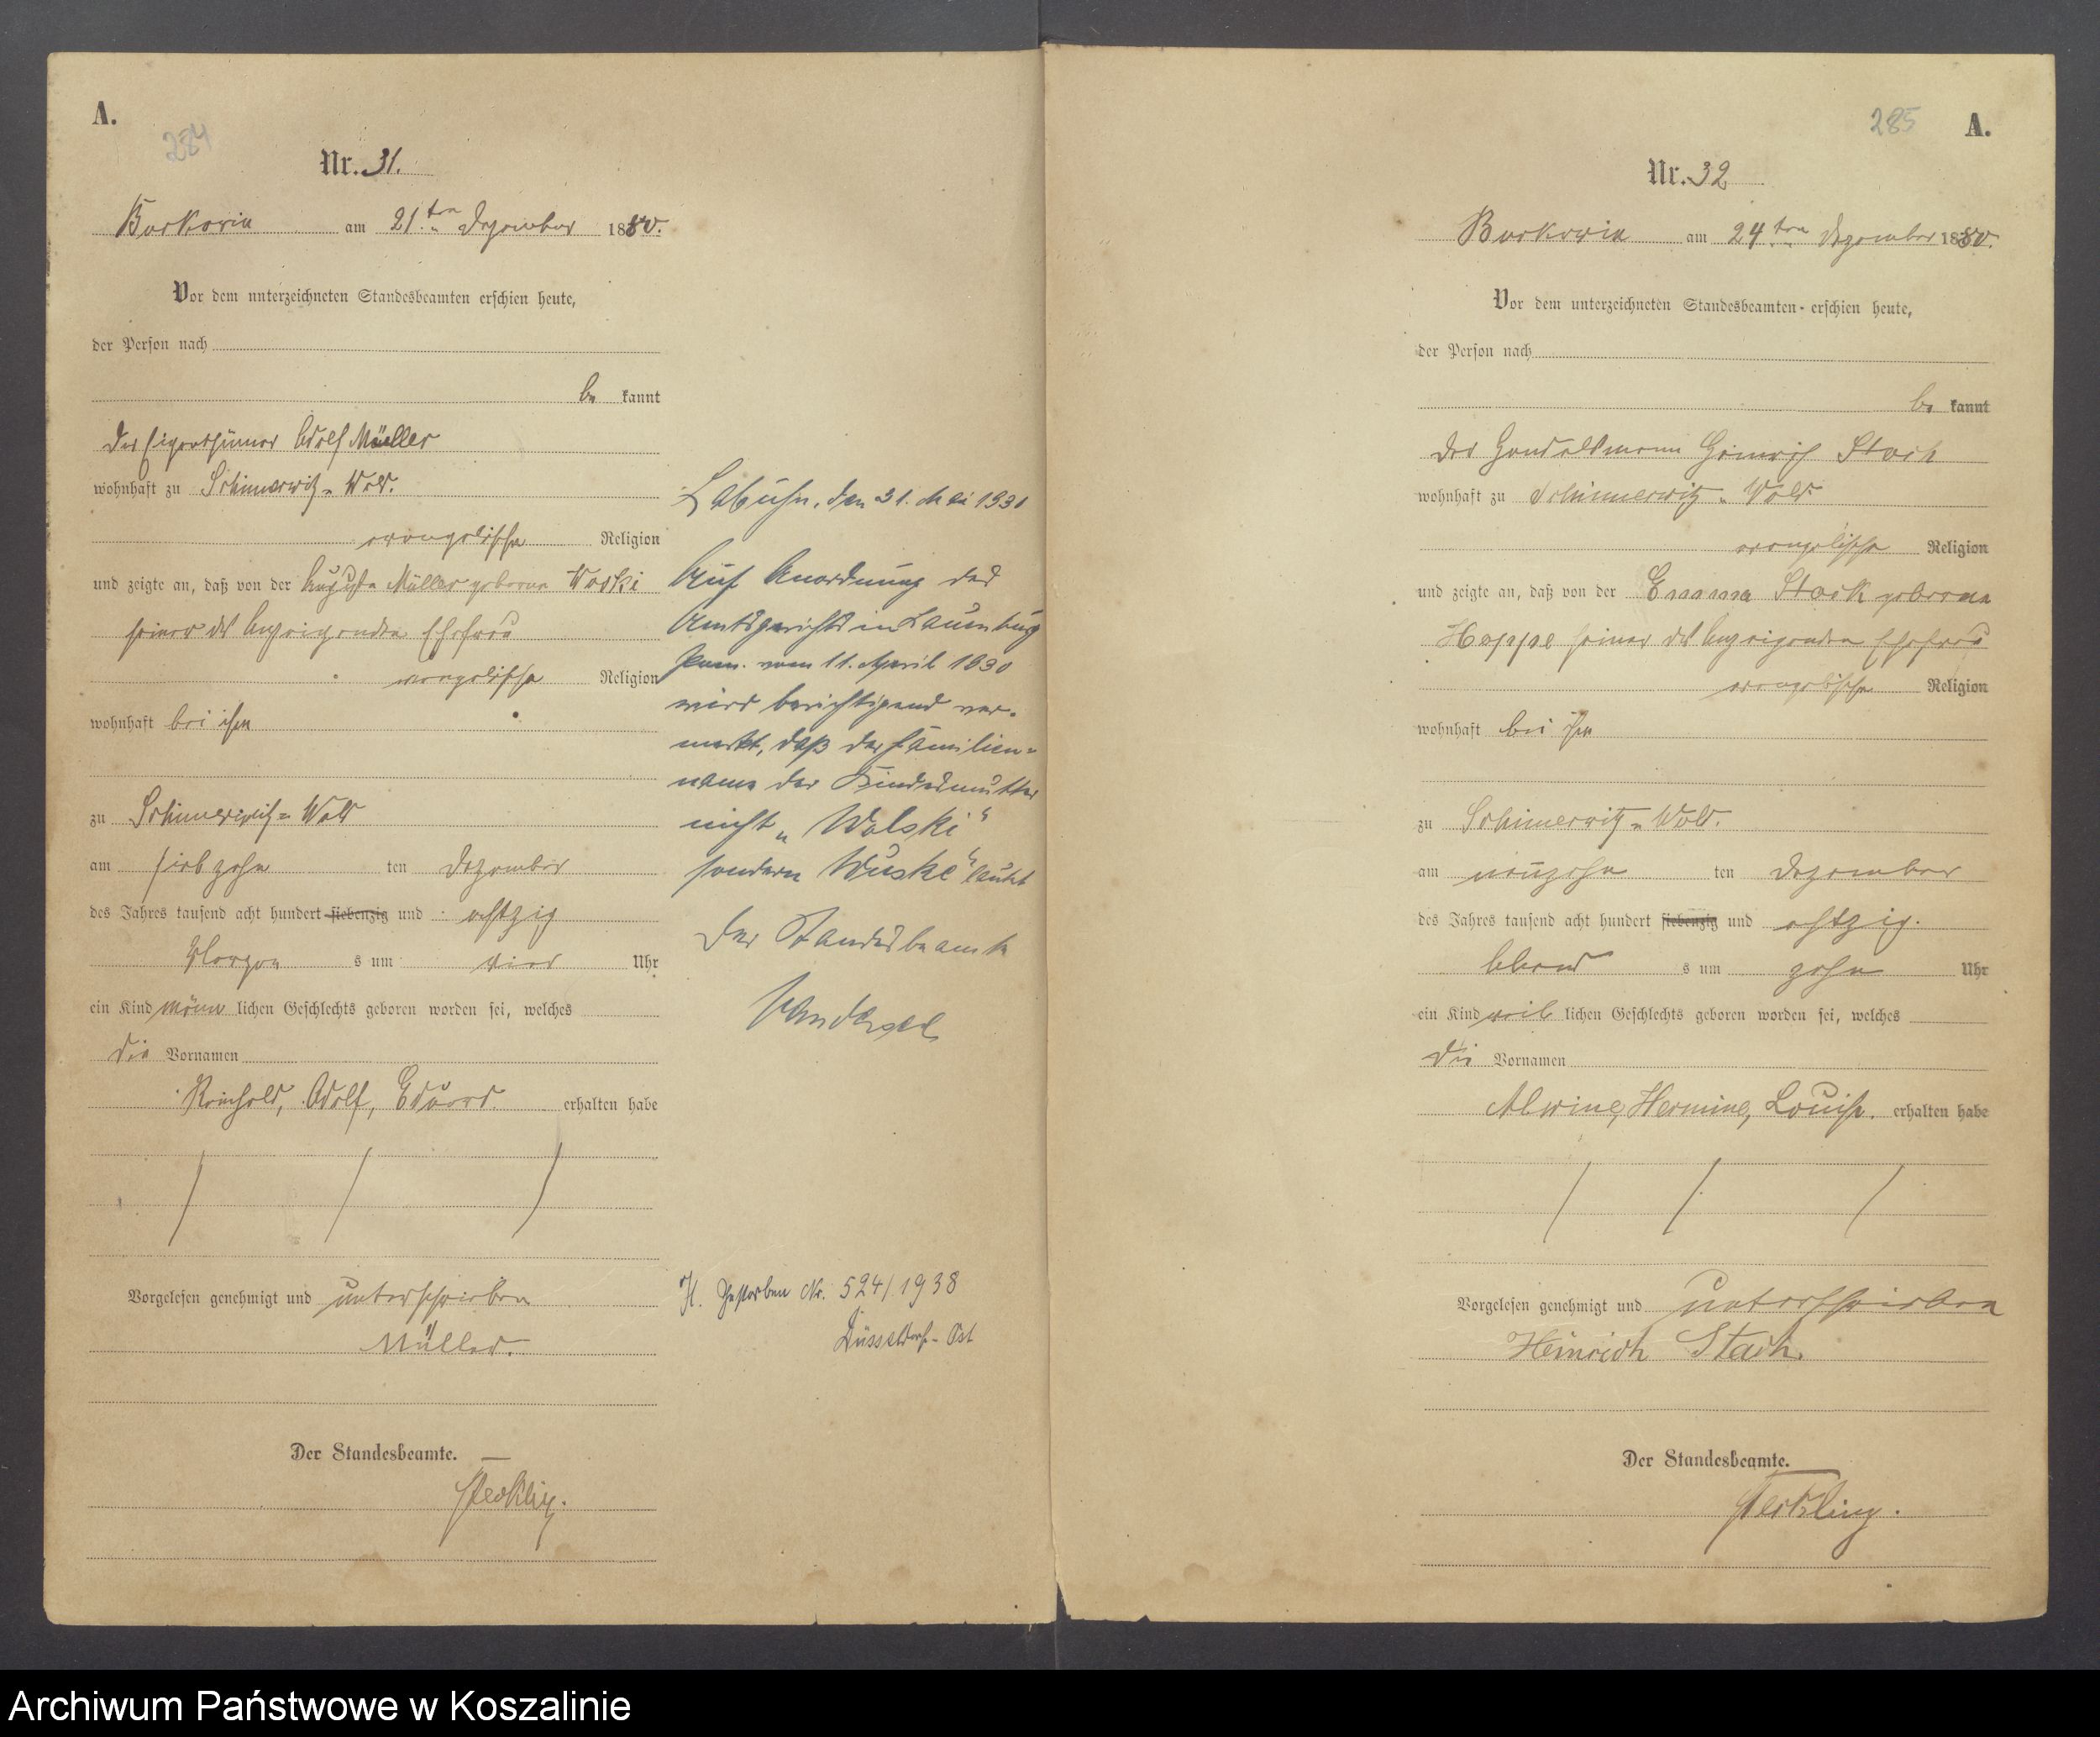 A.
284
Nr. 31.
Borkowin am 21.ten Dezember 1880.
Vor dem unterzeichneten Standesbeamten erschien heute,
der Person nach
be kannt
der Eigenthümer Adolf Müller
wohnhaft zu Schimmerwitz-Wold.
evangelischer Religion
und zeigte an, daß von der Auguste Müller geborne
seiner des Anzeigenden Ehefrau
evangelischer Religion
wohnhaft bei ihm
zu Schimmerwitz-Wold
am siebzehn ten Dezember
des Jahres tausend acht hundert siebenzig und achtzig
Morgen s um vier Uhr
ein Kind männ lichen Geschlechts geboren worden sei, welches
die Vornamen
Reinhold, Adolf, Eduard. erhalten habe
Vorgelesen genehmigt und unterschrieben
Müller.
Der Standesbeamte.
Labuhn, den 31. Mai 1930
Auf Anordnung des
Amtsgerichts in Lauenburg
Pom. vom 11. April 1930
wird berichtigend ver-
merkt, daß der Familien-
name der Kindesmutter
nicht „Wolski“
sondern „Wuske“ lautet
Der Standesbeamte
H. Gestorben Nr. 524/1938
Düsseldorf-Ost
285 A.
Nr. 32
Borkowin am 24ten Dezember 1880.
Vor dem unterzeichneten Standesbeamten erschien heute,
der Person nach
be kannt
der Handelsmann Heinrich Stach
wohnhaft zu Schimmerwitz-Wold.
evangelischer Religion
und zeigte an, daß von der Emma Stach geborene
Heppe seiner des Anzeigenden Ehefrau
evangelischer Religion
wohnhaft bei ihm
zu Schimmerwitz-Wold.
am neunzehn ten Dezember
des Jahres tausend acht hundert siebenzig und achtzig.
Abend s um zehn Uhr
ein Kind weib lichen Geschlechts geboren worden sei, welches
die Vornamen
Alwine, Hermine, Louise. erhalten habe
Vorgelesen genehmigt und unterschrieben
Heinrich Stach.
Der Standesbeamte.
Archiwum Państwowe w Koszalinie